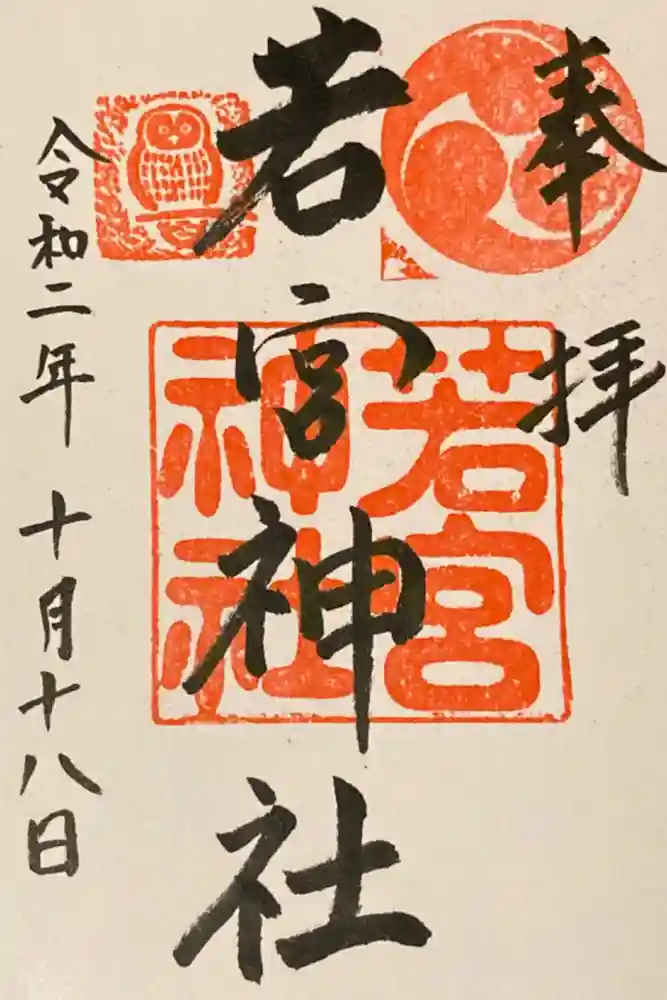 奉拝
若宮神社
若宮
神社
令和二年 十月十八日